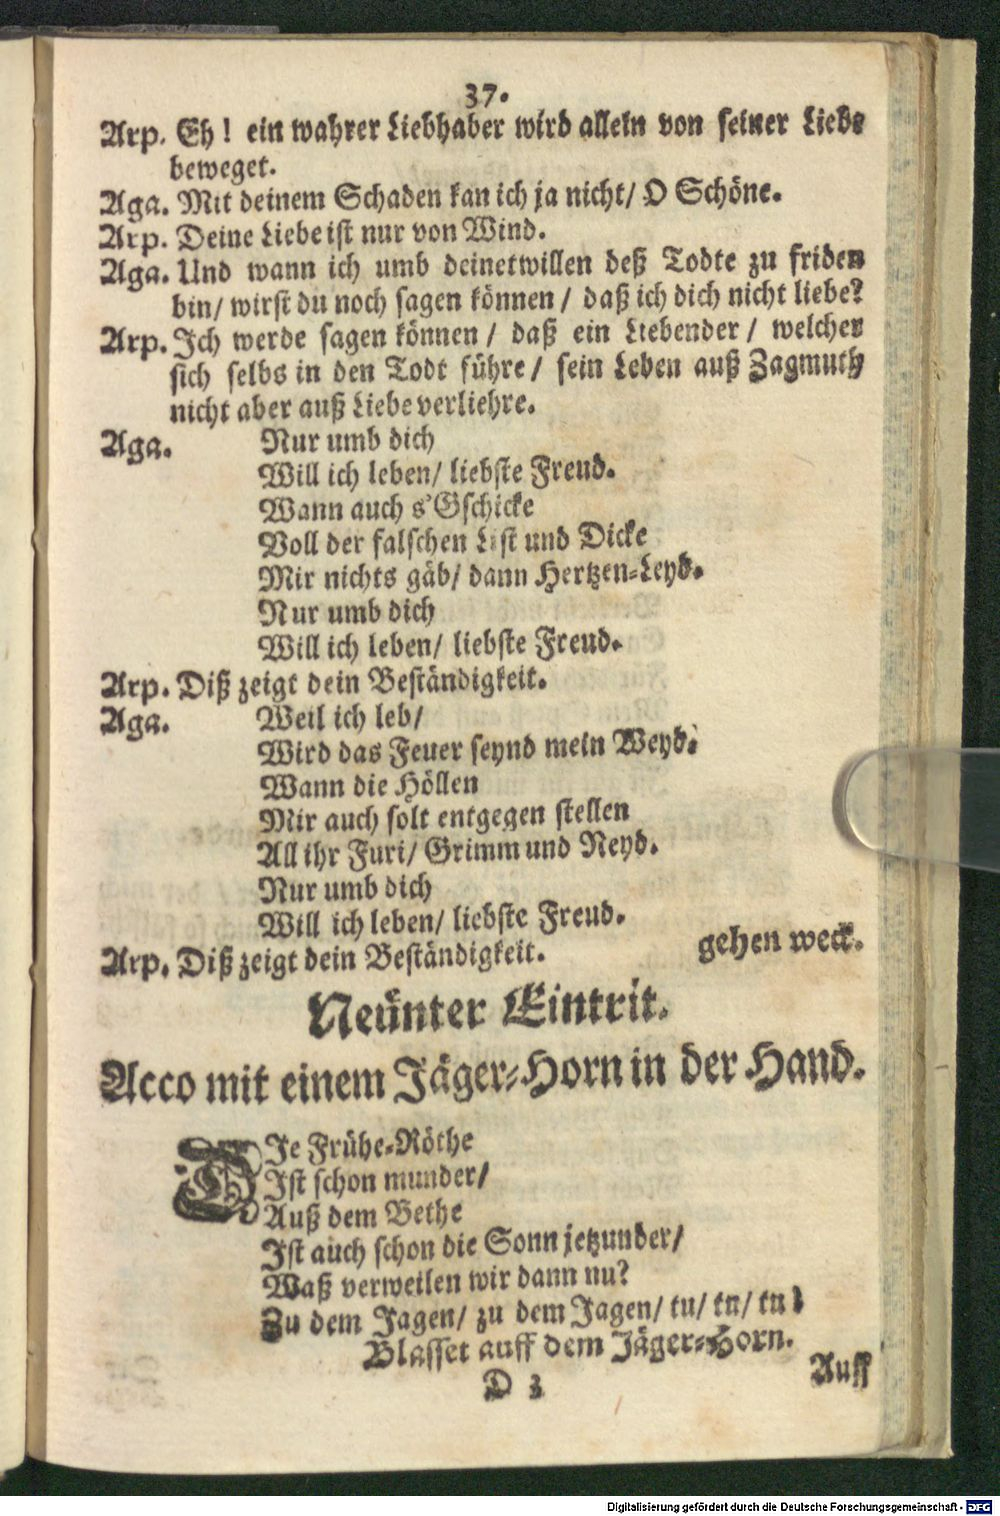 37.
Arp. Eh! ein wahrer Liebhaber wird allein von seiner Liebe
beweget.
Aga. Mit deinem Schaden kan ich ja nicht/ O Schöne.
Arp. Deine Liebe ist nur von Wind.
Aga. Und wann ich umb deinetwillen deß Todte zu friden
bin/ wirst du noch sagen können / daß ich dich nicht liebe?
Arp. Ich werde sagen können / daß ein Liebender / welcher
sich selbs in den Todt führe / sein Leben auß Zagmuth
nicht aber auß Liebe verliehre.
Aga. Nur umb dich
Will ich leben/ liebste Freud.
Wann auch s'Gschicke
Voll der falschen List und Dicke
Mir nichts gäb/ dann Hertzen-Leyd.
Nur umb dich
Will ich leben/ liebste Freud.
Arp. Diß zeigt dein Beständigkeit.
Aga. Weil ich leb/
Wird das Feuer seynd mein Weyd.
Wann die Höllen
Mir auch solt entgegen stellen
All ihr Furi/ Grimm und Neyd.
Nur umb dich
Will ich leben/ liebste Freud.
Arp. Diß zeigt dein Beständigkeit. gehen weck.
Neünter Eintrit.
Acco mit einem Jäger-Horn in der Hand.
DIe Frühe-Röthe
Ist schon munder/
Auß dem Bethe
Ist auch schon die Sonn jetzunder/
Waß verweilen wir dann nu?
Zu dem Jagen/ zu dem Jagen/ tu/ tu/ tu!
Blasset auff dem Jäger-Horn.
D 3 Auff
Digitalisierung gefördert durch die Deutsche Forschungsgemeinschaft - DFG